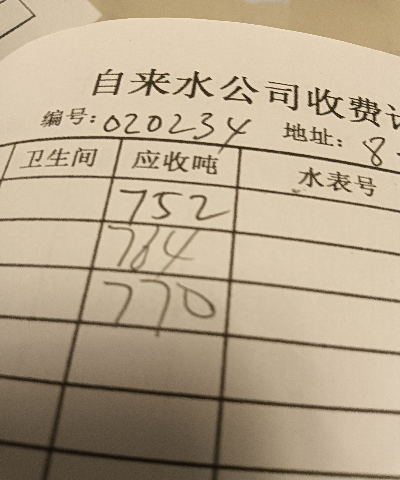 自来水公司收费
编号: 020234 地址: 8
卫生间 应收吨 水表号
752
764
770